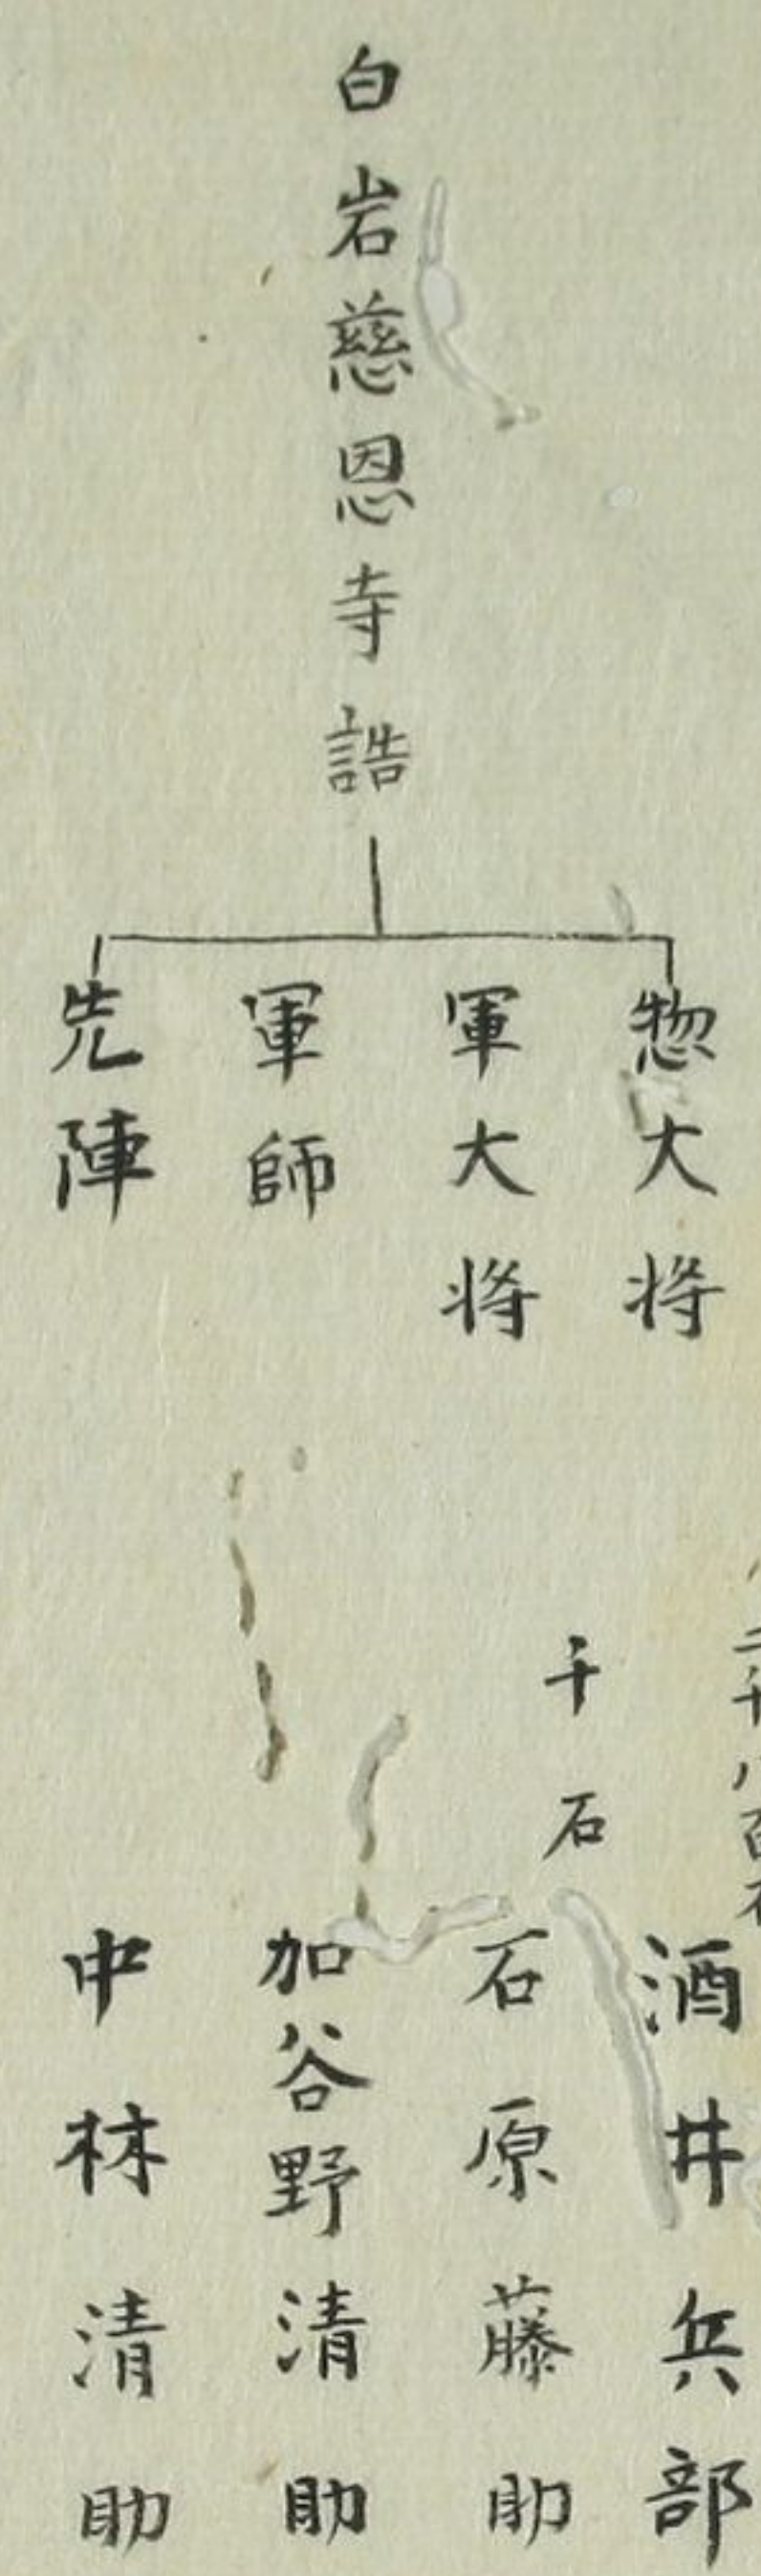 白岩慈恩寺誥
惣大将
二千八百石
酒井兵部
軍大将
千石
石原藤助
軍師
加谷野清助
先陣
中林清助